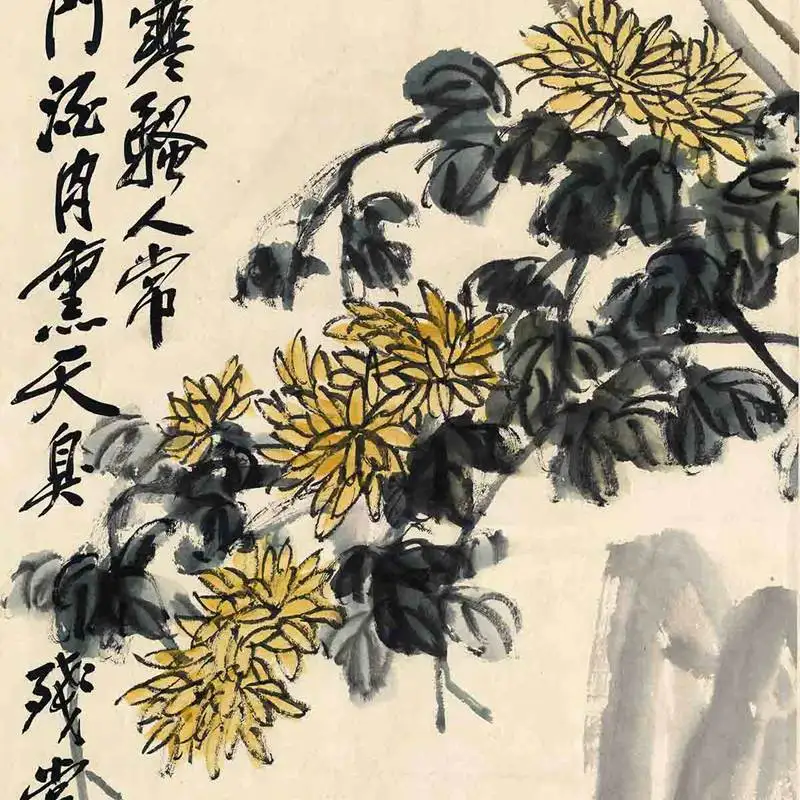 寒騷人常
門酒肉熏天臭殘